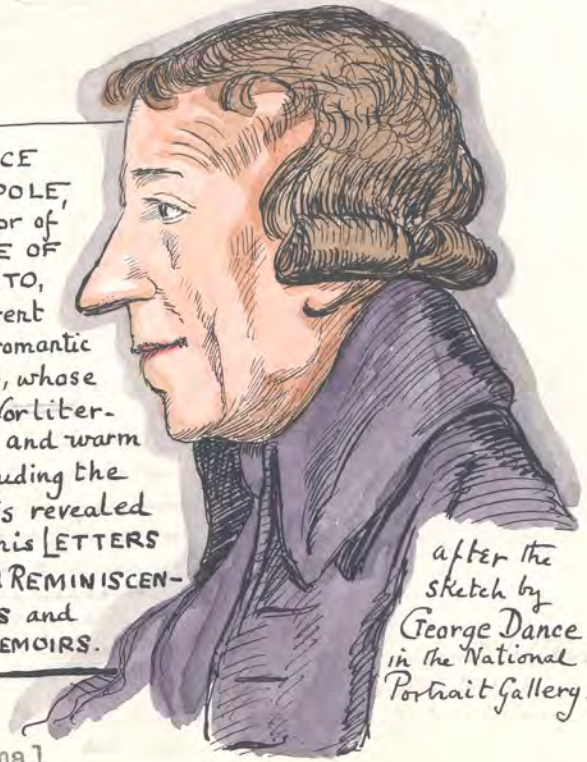 CE
POLE,
or of
E OF
TO,
rent
romantic
, whose
for liter-
and warm
uding the
is revealed
his LETTERS
REMINISCEN-
S and
EMOIRS.
after the
sketch by
George Dance
in the National
Portrait Gallery.
nal